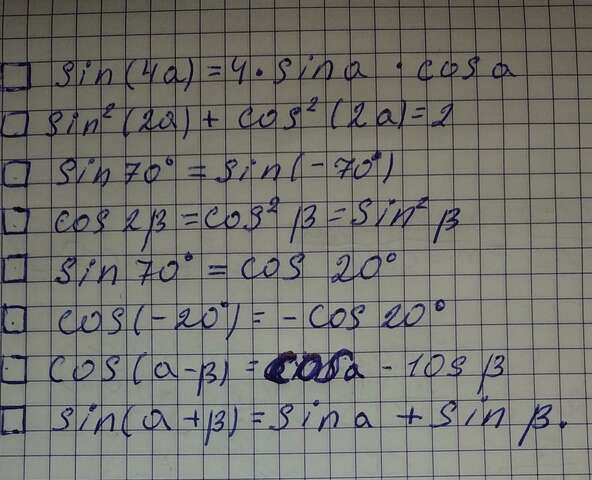 □ sin(4a)=4·sin a · cos a
□ sin²(2a)+ cos²(2a)=2
□ sin 70° = sin(-70°)
□ cos 2β=cos²β=sin²β
□ sin 70° = cos 20°
□ cos(-20°)= -cos 20°
□ cos(a-β) = cosa - 10s β
□ sin(a+β)=sin a + sin β.